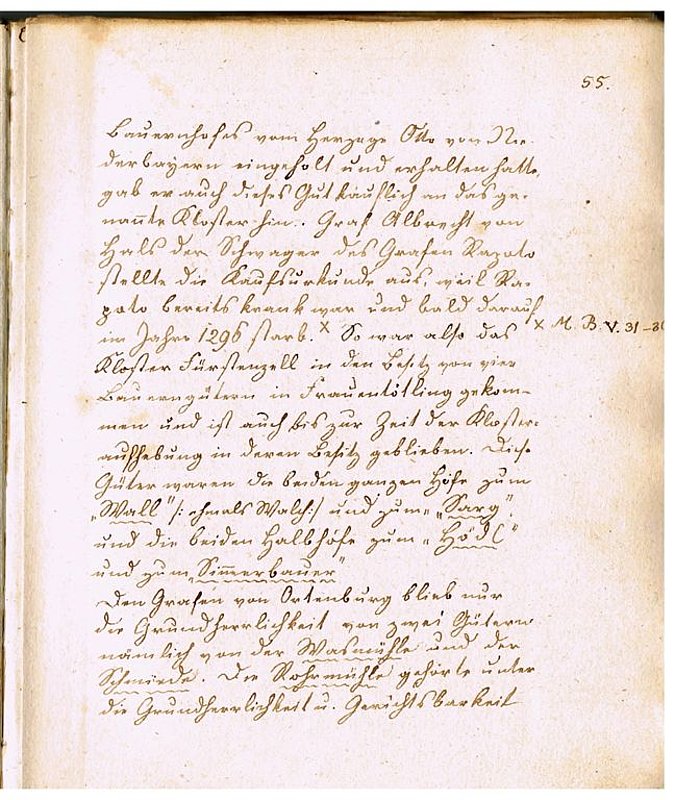 55.
Bauernhofes vom Herzoge Otto von Nie-
derbayern eingeholt und erhalten hatte,
gab er auch dieses Gut käuflich an das ge-
nan̄te Kloster hin. Graf Albrecht von
Hals der Schwager des Grafen Rapoto
stellte die Kaufsurkunde aus, weil Ra-
poto bereits krank war und bald darauf
im Jahre 1296 starb. x So war also das
x M. B. V. 31-
Kloster Fürstenzell in den Besitz von vier
Bauerngütern in Frauentötling gekom-
men und ist auch bis zur Zeit der Kloster-
aufhebung in deren Besitz geblieben. Diese
Güter waren die beiden ganzen Höfe zum
„Wall" /: ehmals Walch :/ und zum „Sarg",
und die beiden Halbhöfe zum „Hödl"
und zum „Sim̄erbauer"
Den Grafen von Ortenburg blieb nur
die Grundherrlichkeit von zwei Gütern
nämlich von der Wasmühle und der
Schmiede. Die Rohrmühle gehörte unter
die Grundherrlichkeit u. Gerichtsbarkeit